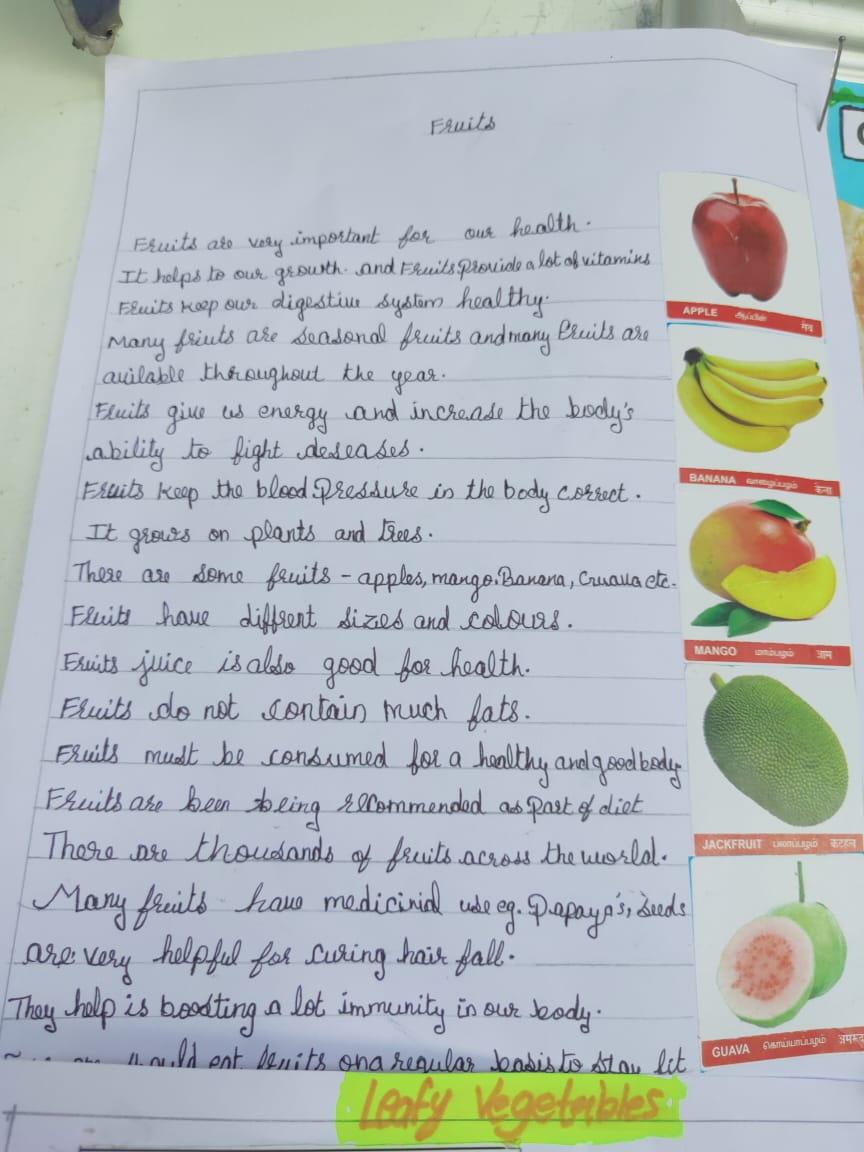 Fruits
Fruits are very important for our health.
It helps to our growth. and Fruits provide a lot of vitamins
Fruits keep our digestive system healthy.
Many friuts are seasonal fruits and many fruits are
avilable throughout the year.
Fruits give us energy and increase the body's
ability to fight deseases.
Fruits keep the blood pressure in the body correct.
It grows on plants and trees.
There are some fruits - apples, mango, Banana, Gruava etc.
Fruits have diffrent sizes and colours.
Fruits juice is also good for health.
Fruits do not contain much fats.
Fruits must be consumed for a healthy and good body
Fruits are been being recommended as part of diet
There are thousands of fruits across the world.
Many fruits have medicinial use eg. Papaya's, seeds
are very helpful for curing hair fall.
They help is boosting a lot immunity in our body.
eat fruits on a regular basis to stay fit
APPLE ஆப்பிள் सेव
BANANA வாழைப்பழம் केला
MANGO மாம்பழம் आम
JACKFRUIT பலாப்பழம் कटहल
GUAVA கொய்யாப்பழம் अमरूद
Leafy Vegetables